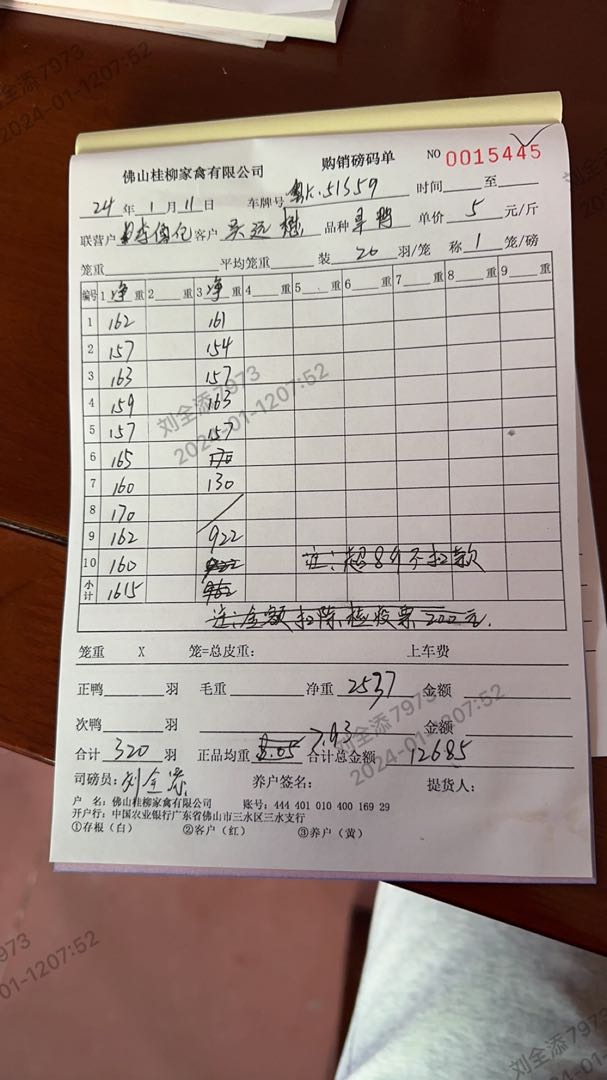 佛山桂柳家禽有限公司 购销磅码单 NO 0015445
24 年 1 月 11 日 车牌号 粤K.51359 时间 至
联营户 客户 品种 单价 5 元/斤
笼重 平均笼重 装 20 羽/笼 称 1 笼/磅
编号 1 净 重 2 重 3 净 重 4 重 5 重 6 重 7 重 8 重 9 重
1 162 161
2 157 154
3 163 157
4 159 163
5 157 157
6 165
7 160 130
8 170
9 162 922
10 160 注:超8斤不扣款
小计 1615
注:金额扣除检收票200元.
笼重 X 笼=总皮重: 上车费
正鸭 羽 毛重 净重 2537 金额
次鸭 羽 7.93 金额
合计 320 羽 正品均重 8.05 合计总金额 12685
司磅员: 刘全添 养户签名: 提货人:
户 名: 佛山桂柳家禽有限公司 账号: 444 401 010 400 169 29
开户行: 中国农业银行广东省佛山市三水区三水支行
①存根(白) ②客户(红) ③养户(黄)
刘全添7973
2024-01-1207:52